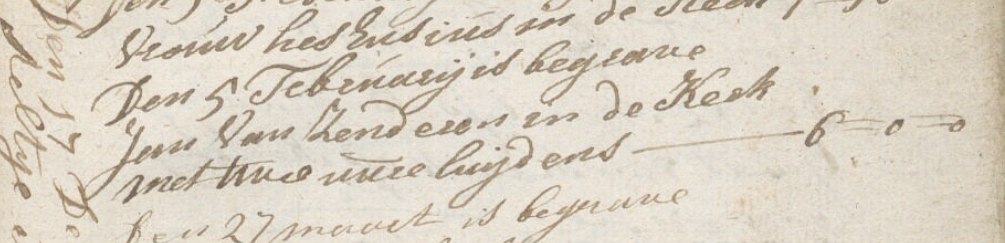 Vrouw heshusius in de Kerk
Den 5 Februarij is begrave
Jan Van Zenderen in de Kerk
met twee uure luijdens — 6=0=0
Den 27 maart is begrave
Den 17 De